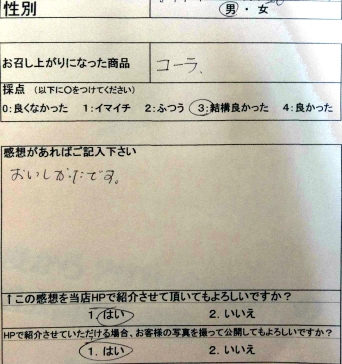 性別 男・女
お召し上がりになった商品 コーラ、
採点 (以下に○をつけてください)
0:良くなかった 1:イマイチ 2:ふつう 3:結構良かった 4:良かった
感想があればご記入下さい
おいしかたです。
↑この感想を当店HPで紹介させて頂いてもよろしいですか?
1. はい 2. いいえ
HPで紹介させていただける場合、お客様の写真を撮って公開してもよろしいですか?
1. はい 2. いいえ